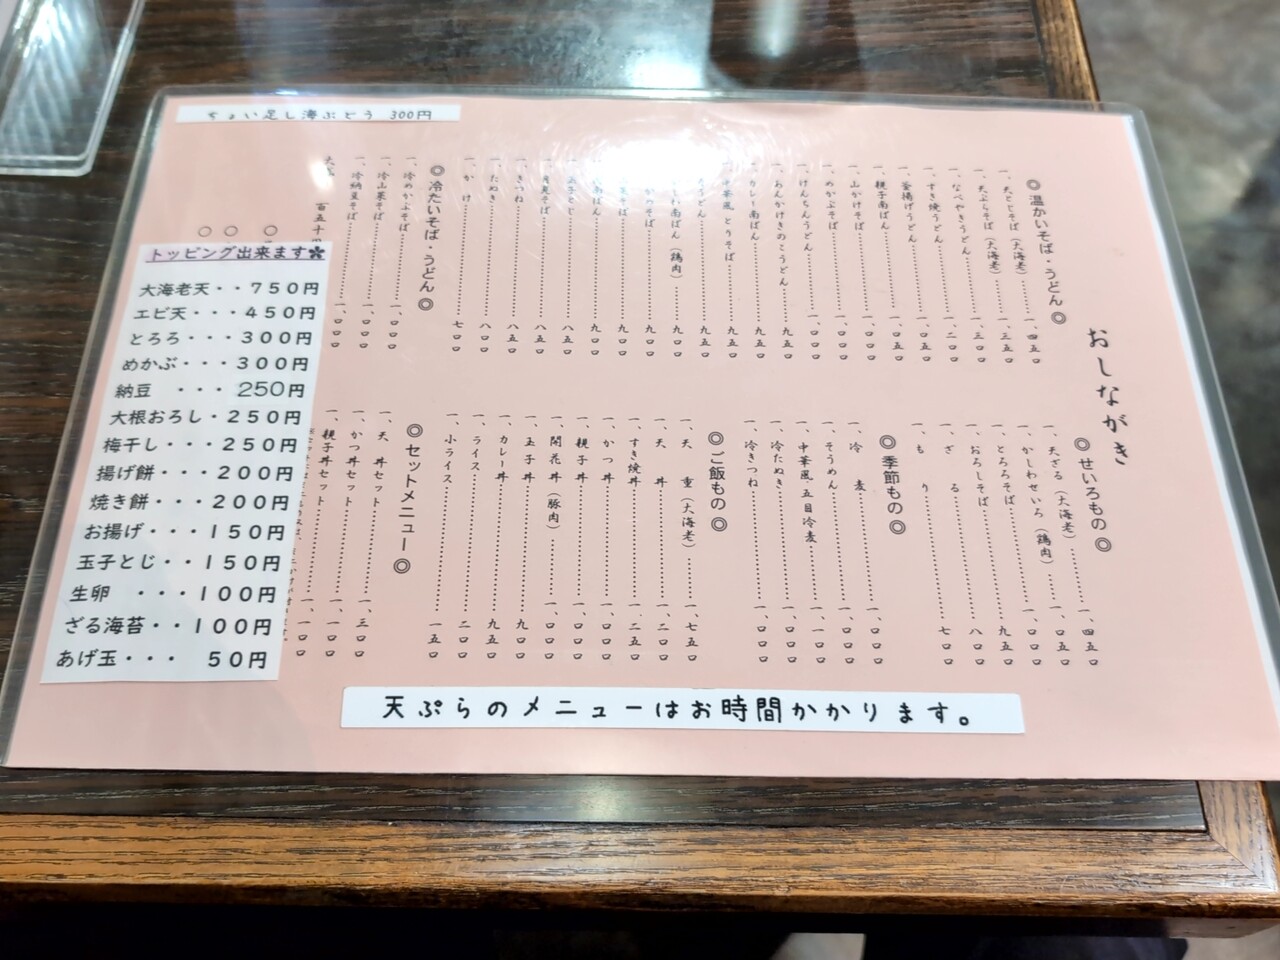 ちょい足し海ぶどう 300円
おしながき
◎温かいそば・うどん◎
一、天とじそば（大海老）一、四五〇
一、天ぷらそば（大海老）一、三五〇
一、なべやきうどん 一、三〇〇
一、すき焼うどん 一、二〇〇
一、釜揚げうどん
一、親子南ばん
一、山かけそば
一、めかぶそば
一、けんちんうどん 一、〇〇〇
一、あんかけきのこうどん 九五〇
一、カレー南ばん 九五〇
中華風とりそば 九五〇
南ばん（鶏肉）九〇〇
玉子とじ 八五〇
一、きつね 八五〇
一、たぬき 八〇〇
一、かけ 七〇〇
◎冷たいそば・うどん◎
一、冷めかぶそば 一、〇〇〇
一、冷山菜そば 一、〇〇〇
一、冷納豆そば 一、〇〇〇
◎せいろもの◎
一、天ざる（大海老）一、四五〇
一、かしわせいろ（鶏肉）一、〇五〇
一、とろろそば 一、〇〇〇
一、おろしそば 九五〇
一、ざる 八〇〇
一、もり 七〇〇
◎季節もの◎
一、冷麦 一、〇〇〇
一、そうめん 一、〇〇〇
一、中華風五目冷麦 一、一〇〇
一、冷たぬき 一、〇〇〇
一、冷きつね 一、〇〇〇
◎ご飯もの◎
一、天重（大海老）一、七五〇
一、天丼 一、二〇〇
一、すき焼丼 一、二五〇
一、かつ丼 一、〇〇〇
一、親子丼 一、〇〇〇
一、開花丼（豚肉）一、〇〇〇
一、玉子丼 九〇〇
一、カレー丼 九五〇
一、ライス 二〇〇
一、小ライス 一五〇
◎セットメニュー◎
一、天丼セット 一、三〇〇
一、かつ丼セット 一、一〇〇
一、親子丼セット 一、一〇〇
トッピング出来ます
大海老天・・750円
エビ天・・・450円
とろろ・・・300円
めかぶ・・・300円
納豆 ・・・250円
大根おろし・250円
梅干し・・・250円
揚げ餅・・・200円
焼き餅・・・200円
お揚げ・・・150円
玉子とじ・・150円
生卵 ・・・100円
ざる海苔・・100円
あげ玉・・・ 50円
天ぷらのメニューはお時間かかります。